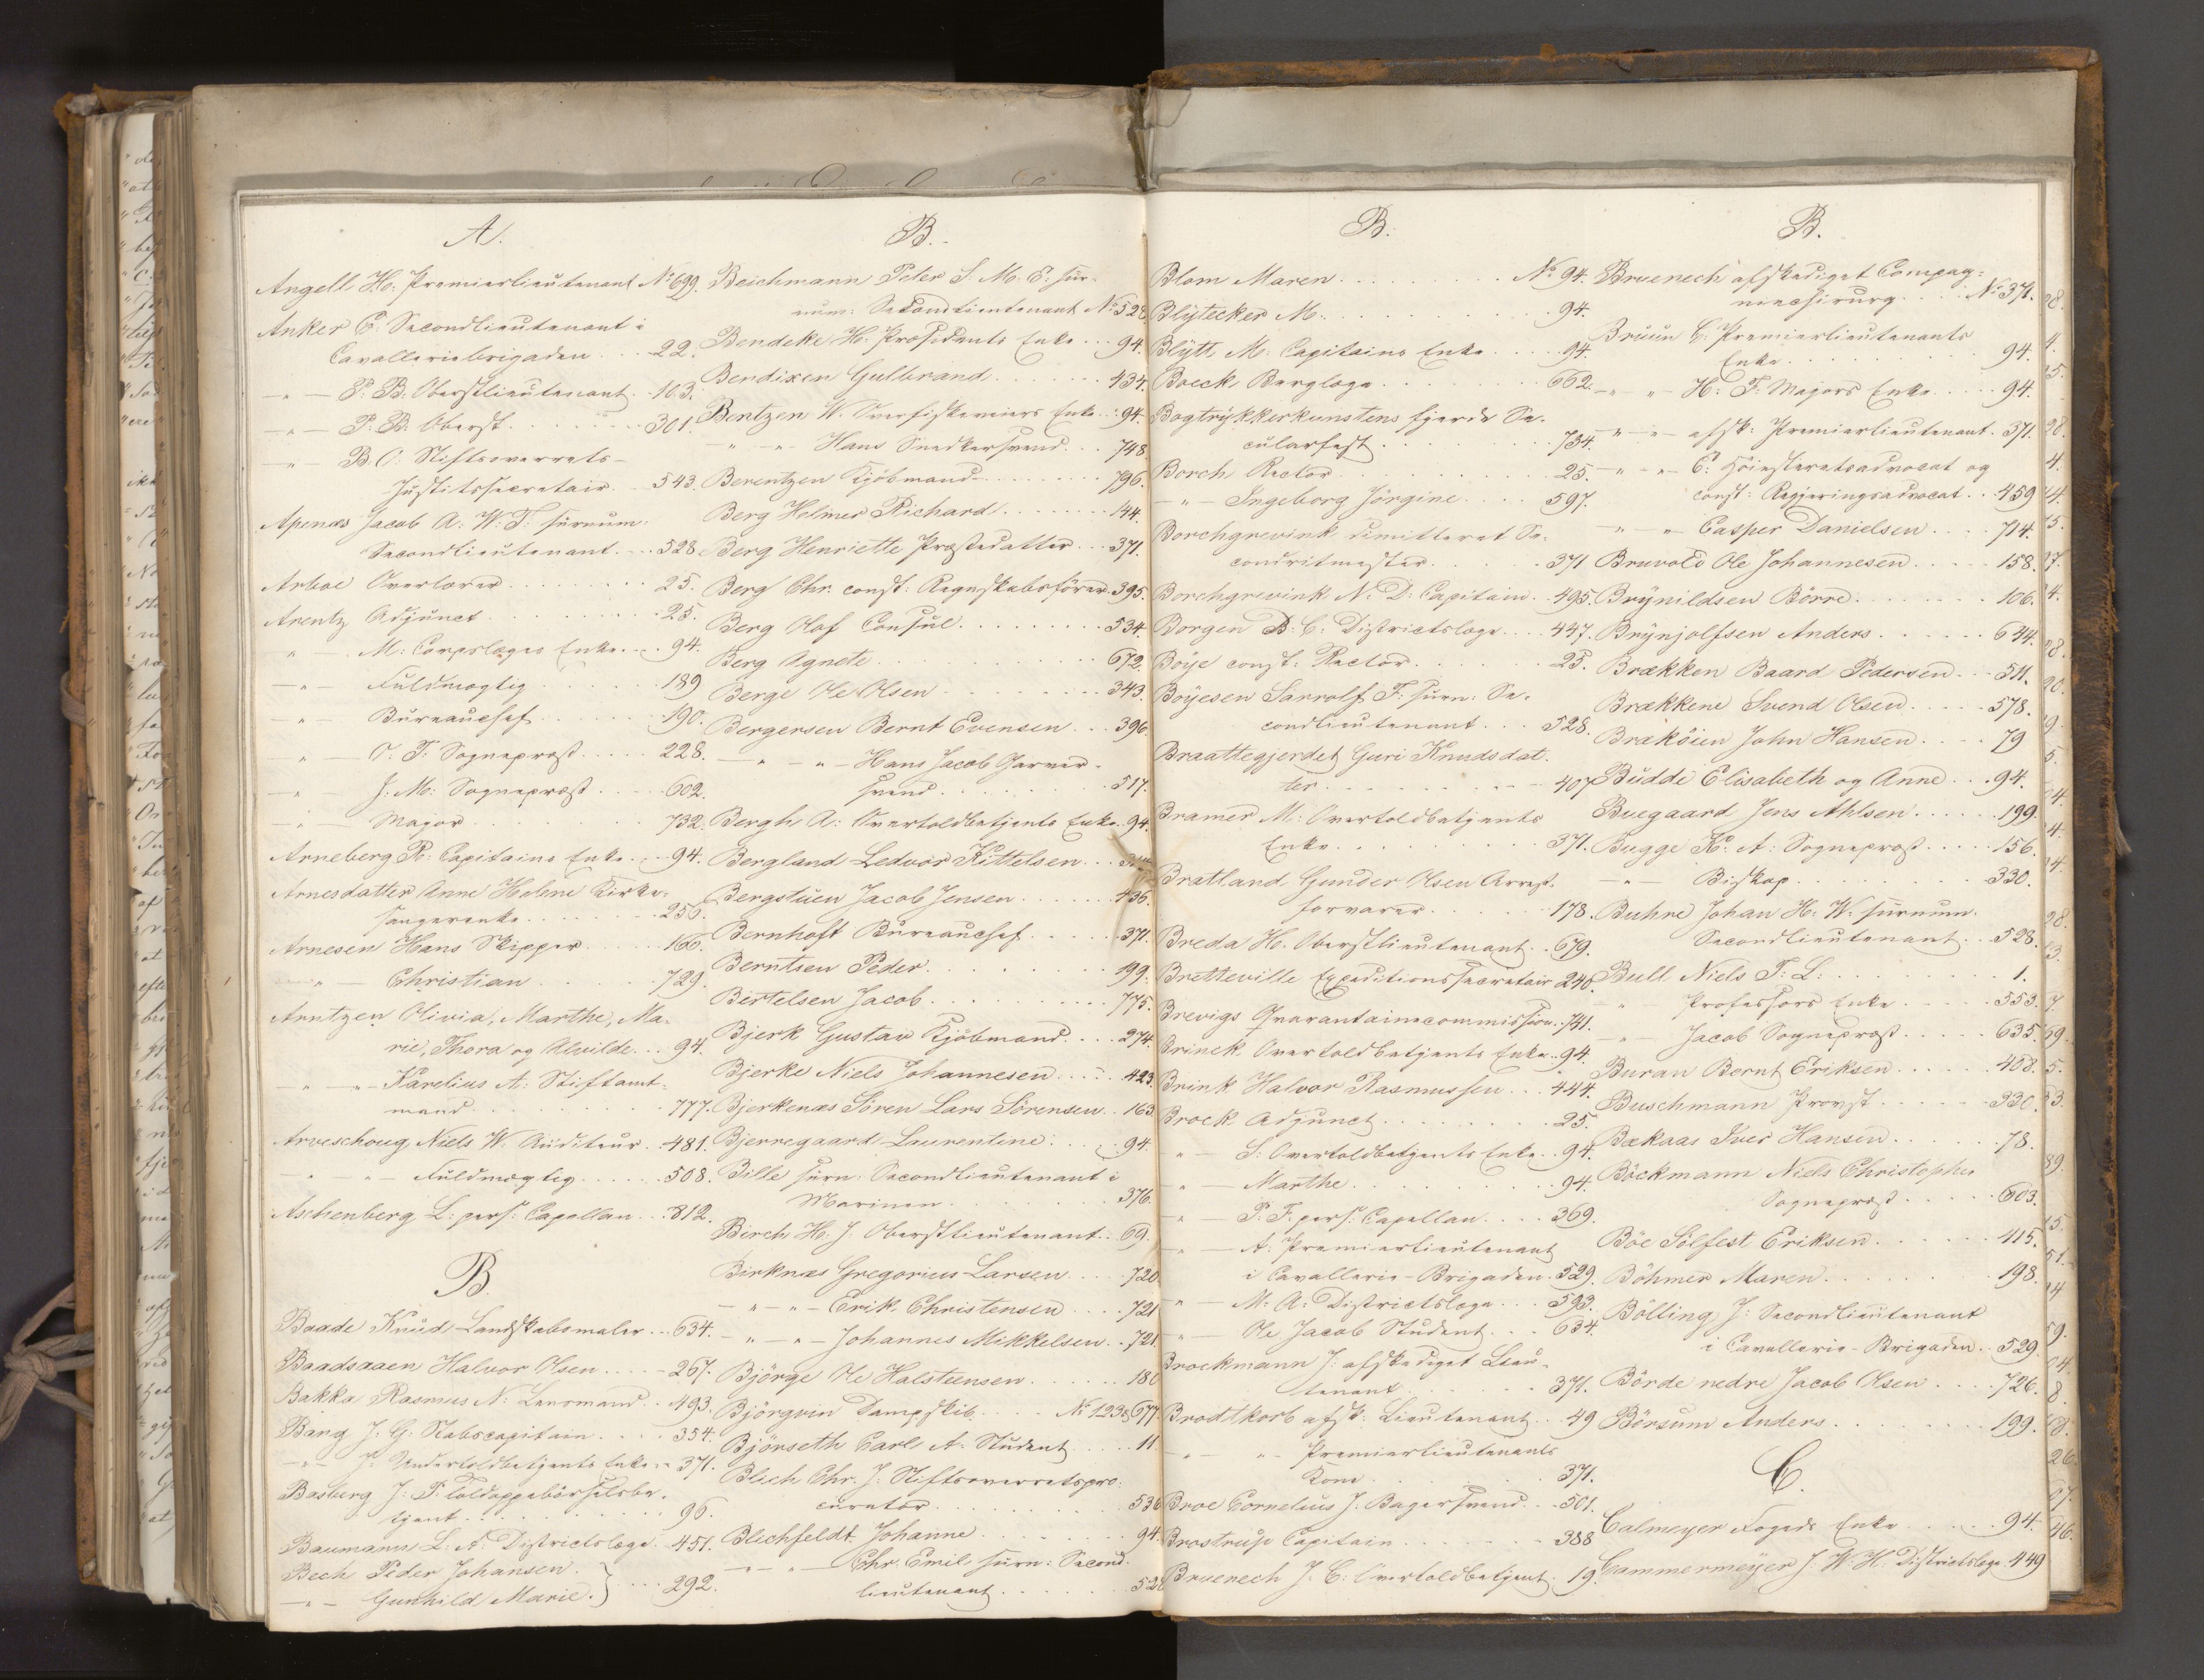 A.
Angell H: Premierlieutenant No 699.
Anker C: Secondlieutenant i
Cavalleriebrigaden . . . 22.
- " - P: B: Oberstlieutenant . 103.
- " - P: B: Oberst . . . . . 301.
- " - B. O: Stiftsoverrets-
Justitssecretair . . 543.
Apenæs Jacob A: W: T: surnum:
Secondlieutenant . . . 528
Arboe Overlærer . . . . . . . 25.
Arentz Adjunct . . . . . . . 25.
" - M: Corpslæges Enke . . . 94.
- " - Fuldmægtig . . . . . 189
- " - Bureauchef . . . . . 190.
" - O. T: Sogneprest . . . . 228.
- " - J: M: Sogneprest . . . . 602.
- " - Major . . . . . . . 732.
Arneberg R: Capitains Enke . . . 94.
Arnesdatter Anne Helene Kirke-
sangerenke . . . . . . 256.
Arnesen Hans Skipper . . . . 166.
- " - Christian . . . . . 729.
Arntzen Olivia, Marthe, Ma-
rie, Thora og Alvilde . . . 94.
- " - " - Karelius A: Stiftamt-
mand . . . . . . . 777.
Arveschoug Niels W. Auditeur . . 481.
" - " - Fuldmægtig . . . . . 508.
Aschenberg L: pers: Capellan . . . 812.
B.
Baade Knud Landskabsmaler . . . 634.
Baadsaaen Halvor Olsen . . . . 267.
Bakka Rasmus N: Lensmand . . 493.
Bang J. G: Stabscapitain . . . . 354.
- " - J: Undertoldbetjents Enke . . 371.
Basberg J: P: Toldoppebørselsbe-
tjent . . . . . . . . 96.
Baumann L: A: Districtslæge . 451.
Bech Peder Johansen. }
- " - Gunhild Marie. } . . . 292.
B.
Beichmann Peter S. M. E: sur-
num: Secondlieutenant No 528
Bendeke H: Præsidents Enke . . . 94.
Bendixen Gulbrand . . . . . . 434.
Bentzen W. Overfiskeveiers Enke . . 94.
" - " Hans Snedkersvend . . . 748.
Berentzen Kjöbmand . . . . . . 796.
Berg Helmer Richard . . . . . . 144.
Berg Henriette Præstedatter . . . 371.
Berg Chr. const: Regnskabsförer . 395.
Berg Olaf Consul . . . . . . . 534.
Berg Agnete . . . . . . . . 672.
Berge Ole Olsen . . . . . . . 343.
Bergersen Bernt Evensen . . . 396.
- " - " - Hans Jacob Garver-
svend . . . . . . . 517.
Bergh A: Overtoldbetjents Enke . 94.
Bergland Ledvor Kittelsen . . .
Bergstuen Jacob Jensen . . . . . 436.
Bernhoft Bureauchef . . . . . 371.
Berntsen Peder . . . . . . . 199.
Bertelsen Jacob . . . . . . . . 775.
Bjerk Gustav Kjöbmand . . . . 274.
Bjerke Niels Johannesen . . . . 423.
Bjerkenæs Sören Lars Sörensen . . 163
Bjerregaard Laurentine . . . . . 94.
Bille surn: Secondlieutenant i
Marinen . . . . . . . 376.
Birch H. J. Oberstlieutenant . . 69.
Birknæs Gregorius Larsen . . . . 720
- " - " - Erik Christensen . . . . 721
- " - " - Johannes Mikkelsen . . 721.
Björge Ole Halsteensen . . . . . 180
Björgvin Dampskib . . . . No 123 & 677.
Björseth Carl A: Student . . . . 11
Blich Chr. J. Stiftsoverretspro-
curator . . . . . . . . 536
Blichfeldt Johanne . . . . . . . 94.
- " - Chr. Emil surn: Second-
lieutenant . . . . . . 528
B.
Blom Maren . . . . . . . No 94.
Blytecker M: . . . . . . . . 94.
Blytt M. Capitains Enke . . . . 94.
Boeck Berglæge . . . . . . . 662.
Bogtrykkerkunstens fjerde Se-
cularfest . . . . . . . 734.
Borch Rector . . . . . . . . 25.
- " - Ingeborg Jörgine . . . . 597.
Borchgrevink dimitteret Se-
condritmester . . . . . . 371
Borchgrevink N. D: Capitain . . 495.
Borgen B: C: Districtslæge . . . 447.
Boye const: Rector . . . . . . 25.
Boyesen Sarrolf T: surn: Se-
condlieutenant . . . . 528.
Braattegjerdet Guri Knudsdat-
ter . . . . . . . . . 407
Bramer M: Overtoldbetjents
Enke . . . . . . . . . 371.
Bratland Gunder Olsen Arrest-
forvarer . . . . . . . 178.
Breda H. Oberstlieutenant . . 679.
Bretteville Expeditionssecretair 240.
Brevigs Qvarantainecommission . 741.
Brinck Overtoldbetjents Enke . . 94.
Brink Halvor Rasmussen . . . 444.
Brock Adjunct . . . . . . . 25.
" - S: Overtoldbetjents Enke . . 94.
" - Marthe . . . . . . . 94.
" - P: F: pers: Capellan . . . . 369.
" - A: Premierlieutenant
i Cavallerie-Brigaden . 529.
" - M: A: Districtslæge . . . 593.
" - Ole Jacob Student . . . 634.
Brockmann J: afskediget Lieu-
tenant . . . . . . . 371.
Brodtkorb afsk: Lieutenant . . 49
" - " - Premierlieutenants
Kone . . . . . . . . 371.
Broe Cornelius J. Bagersvend . . 501.
Brostrup Capitain . . . . . . 388
Bruenech J. C: Overtoldbetjent . 19.
B.
Bruenech afskediget Compag-
niechirurg . . . . No 371.
Bruun C: Premierlieutenants
Enke . . . . . . . . 94.
- " - " H: T: Majors Enke . . . . 94.
" - " - afsk: Premierlieutenant . 371.
- " - " - C: Höiesteretsadvocat og
const: Regjeringsadvocat . . 459
" - " Casper Danielsen . . . . 714.
Bruvold Ole Johannesen . . . . . 158.
Brynildsen Börre . . . . . . . 106.
Brynjolfsen Anders . . . . . . 634.
Brækken Baard Pedersen . . . 511.
Brækkene Svend Olsen . . . . . 578.
Bræköien John Hansen . . . . 79
Budde Elisabeth og Anne . . . 94.
Buegaard Jens Ahlsen . . . . . . 199.
Bugge K: A: Sogneprest . . . . . 156.
- " - Biskop . . . . . . . . 330.
Buhre Johan H: W: surnum.
Secondlieutenant . . 528.
Bull Niels T: L: . . . . . . . 1.
" Professors Enke . . . . . 553.
- " Jacob Sogneprest . . . . . 635.
Buran Bernt Eriksen . . . . . . 408.
Buschmann Provst . . . . . . . 330.
Bækaas Iver Hansen . . . . . . 78.
Böckmann Niels Christopher
Sogneprest . . . . . 603.
Böe Sölfest Eriksen . . . . . . 415.
Böhmer Maren . . . . . . . 198.
Bölling J: Secondlieutenant
i Cavallerie-Brigaden . . 529.
Börde nedre Jacob Olsen . . . . 726.
Börsum Anders . . . . . . . 199.
C.
Calmeyer Fogeds Enke . . . . . 94.
Cammermeyer J. W. H. Districtslæge . 449